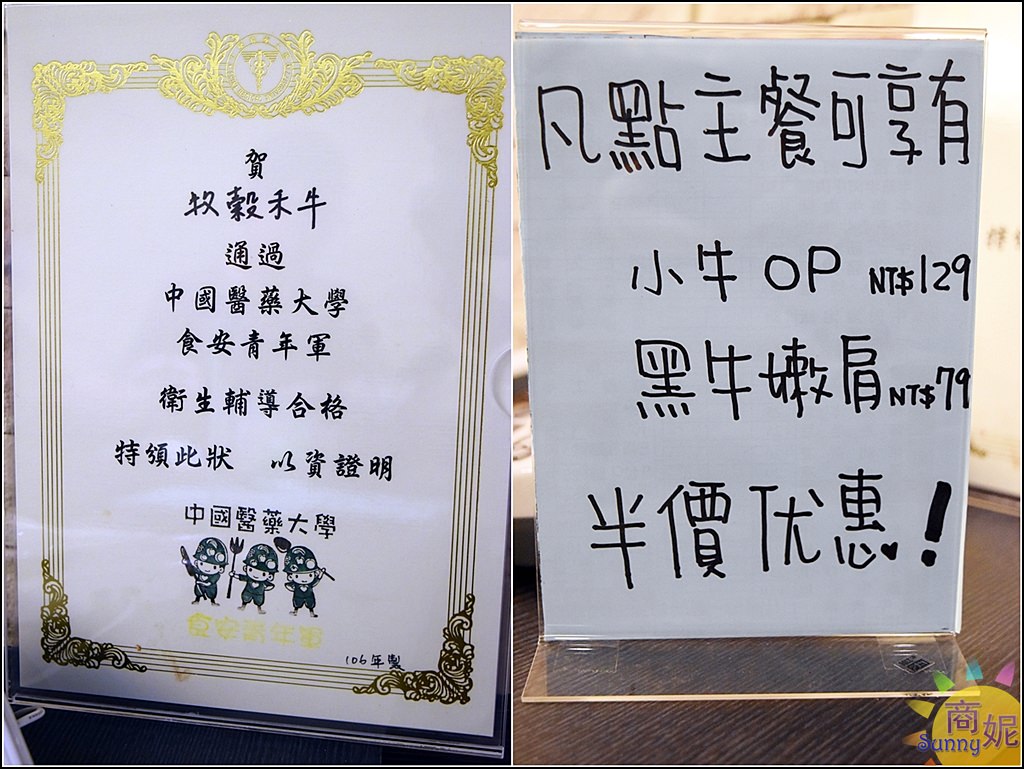 賀
牧穀禾牛
通過
中國醫藥大學
食安青年軍
衛生輔導合格
特頒此狀 以資證明
中國醫藥大學
食安青年軍
106年製
凡點主餐可享有
小牛OP NT$129
黑牛嫩肩NT$79
半價优惠!
商妮
Sunny